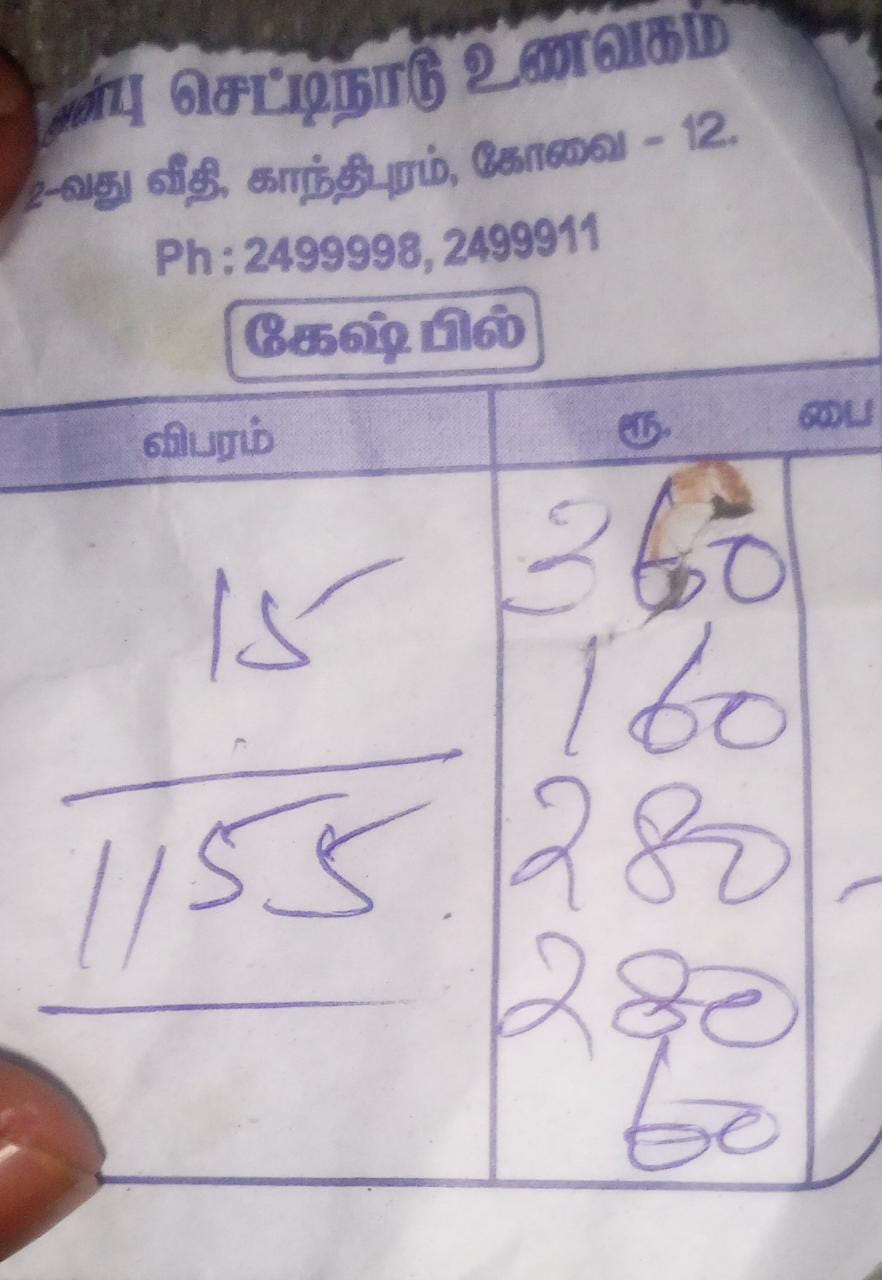 அன்பு செட்டிநாடு உணவகம்
2-வது வீதி, காந்திபுரம், கோவை - 12.
Ph : 2499998, 2499911
கேஷ் பில்
விபரம் ரூ. பை
360
15
160
1155
280
280
60